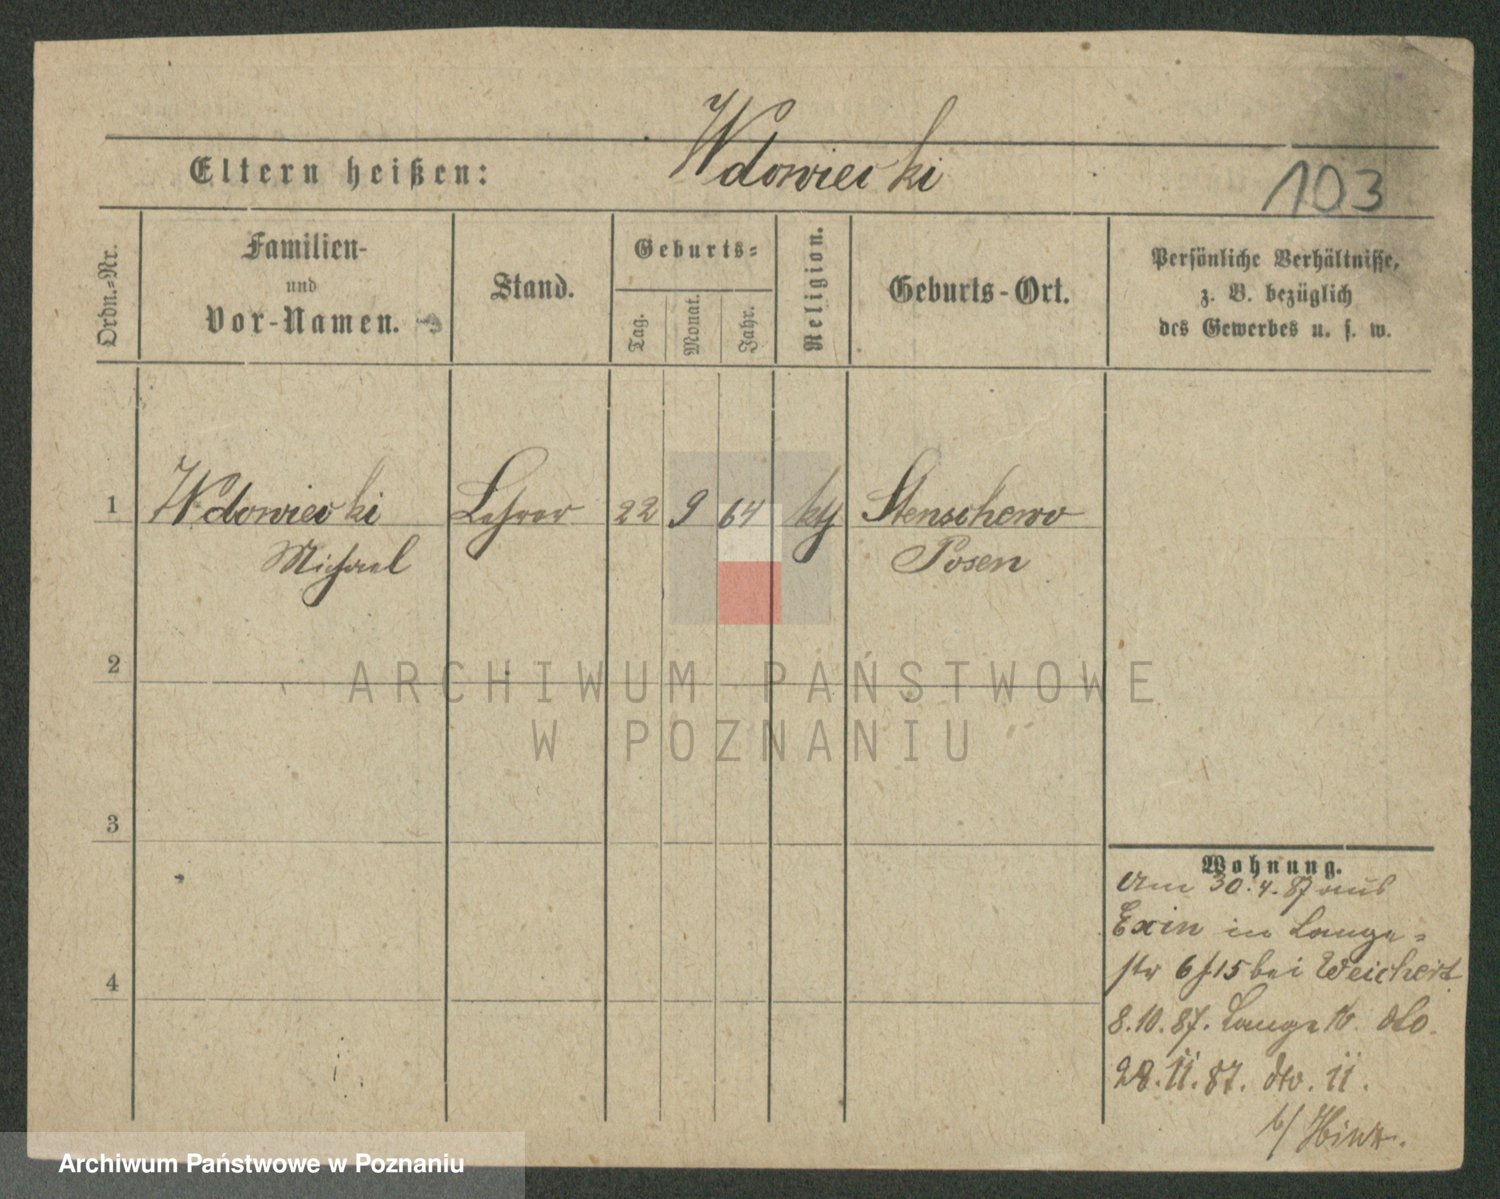 Wdowiecki
Eltern heißen:
103
Ordn.-Nr.
Familien-
und
Vor-Namen.
Stand.
Geburts-
Tag.
Monat.
Jahr.
Religion.
Geburts-Ort.
Persönliche Verhältnisse,
z. B. bezüglich
des Gewerbes u. s. w.
1
Wdowiecki
Michael
Lehrer
22
9
64
Stenschewo
Posen
2
3
4
Wohnung.
Am 30.4.87 aus
Exin in Lange-
str 6 bei Weichert
8.10.87. Lange 10. dto.
28.11.87. dto. 11.
b/ Hink.
ARCHIWUM PAŃSTWOWE
W POZNANIU
Archiwum Państwowe w Poznaniu